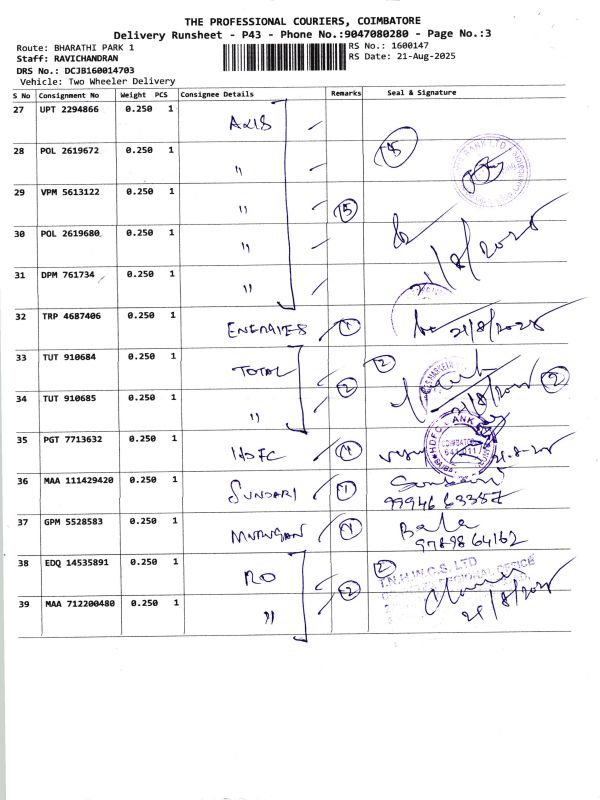 THE PROFESSIONAL COURIERS, COIMBATORE
Delivery Runsheet - P43 - Phone No.:9047080280 - Page No.:3
Route: BHARATHI PARK 1 RS No.: 1600147
Staff: RAVICHANDRAN RS Date: 21-Aug-2025
DRS No.: DCJB160014703
Vehicle: Two Wheeler Delivery
S No Consignment No Weight PCS Consignee Details Remarks Seal & Signature
27 UPT 2294866 0.250 1 AXIS
28 POL 2619672 0.250 1 " 5
29 VPM 5613122 0.250 1 " 5
30 POL 2619680 0.250 1 " 21/8/2025
31 DPM 761734 0.250 1 "
32 TRP 4687406 0.250 1 ENERGIES 1 21/8/2025
33 TUT 910684 0.250 1 TOTAL 2 2
34 TUT 910685 0.250 1 " 21/8/2025 2
35 PGT 7713632 0.250 1 HDFC 1 HDFC BANK COIMBATORE 21-8-25
36 MAA 111429420 0.250 1 SUNDARI 1
99946 63357
37 GPM 5528583 0.250 1 MURUGAN 1 Bala
97898 64162
38 EDQ 14535891 0.250 1 RO 2 2
T.N.H.W.C.S. LTD
REGIONAL OFFICE
39 MAA 712200480 0.250 1 " 21/8/2025